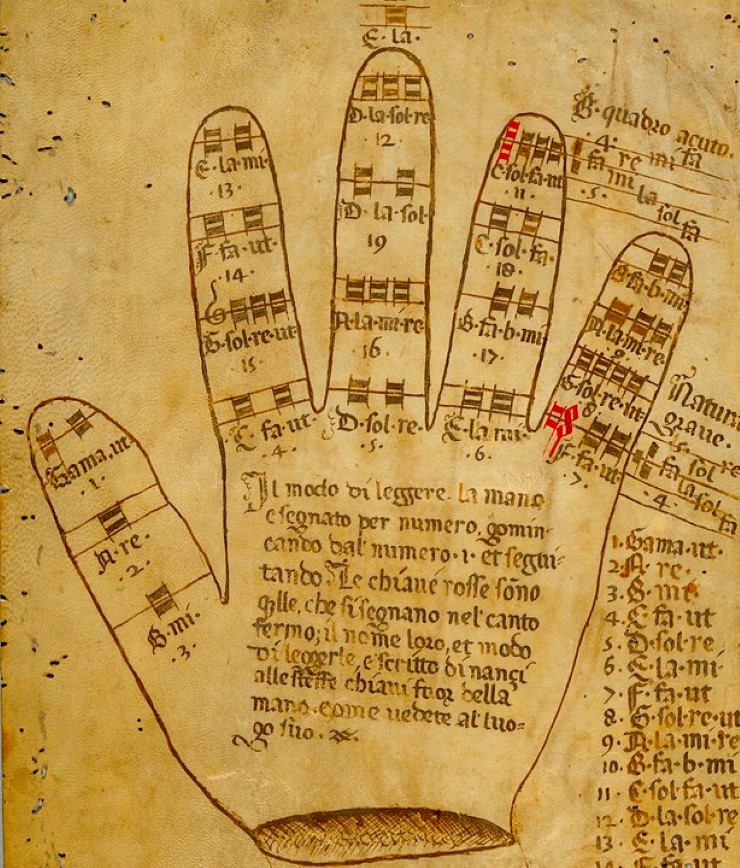 E·la·
D·la·sol·re
12
E·la·mi·
13·
F·fa·ut·
·14·
G·sol·re·ut
15
C·fa·ut·
·4·
D·la·sol·
19
A·la·mi·re
·16
D·sol·re·
·5·
C·sol·fa·ut
·11·
C·sol·fa·
·18·
B·fa·b·mi
·17·
E·la·mi·
·6·
B·quadro acuto·
·4· re mi fa
fa mi la
·5· sol fa
B·fa·b·mi
A·la·mi·re
9·
G·sol·re·ut
8
F·fa·ut·
·7·
Natura
grave·
fa sol
la sol fa
·4·
Gama·ut·
·1·
A·re·
·2·
B·mi·
·3·
Il modo di leggere la mano
e segnato per numero, gomin-
cando dal numero·1· et segui-
tando. Le chiaue rosse sono
qlle, che si segnano nel canto
fermo; il nome loro, et modo
di leggerle, e scritto dinançi
alle steße chiaui fuor della
mano, come uedete al luo-
go suo·
1·Gama·ut·
2·A·re·
3·B·mi·
4·C·fa·ut
5·D·sol·re
6·E·la·mi
7·F·fa·ut
8·G·sol·re·ut
9·A·la·mi·re
10·B·fa·b·mi
11·C·sol·fa·ut
12·D·la·sol·re
13·E·la·mi
14·F·fa·ut